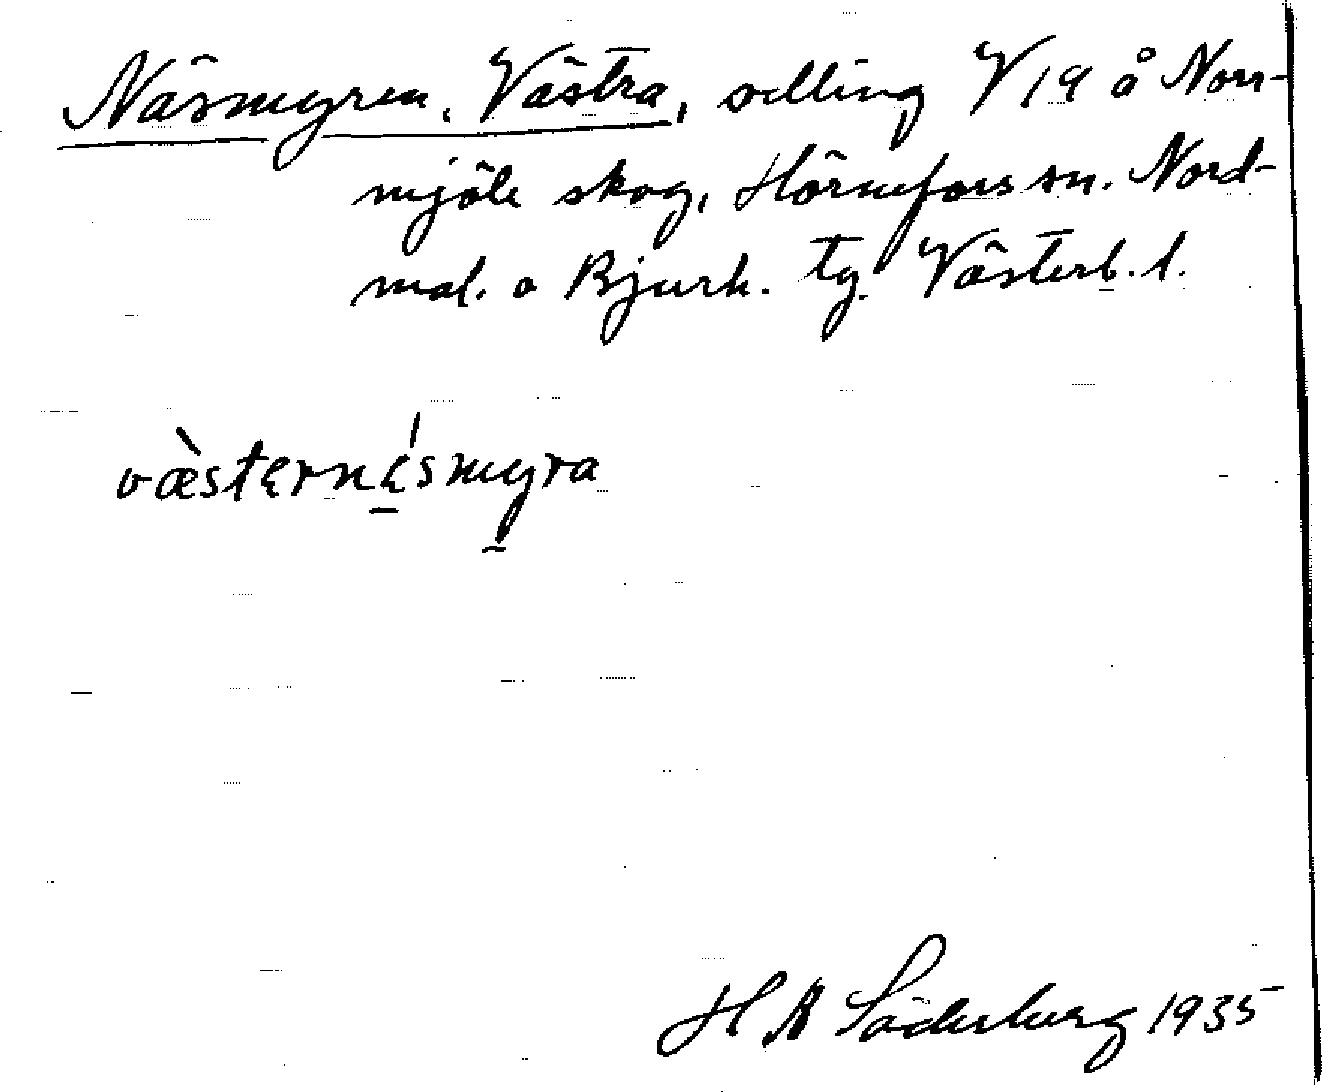 Näsmyren, Västra, odling V 19 å Norr-
mjöle skog, Hörnefors sn. Nord-
mal. o Bjurh. tg. Västerb. l.
væ̀sternésmyra
H A Söderberg 1935